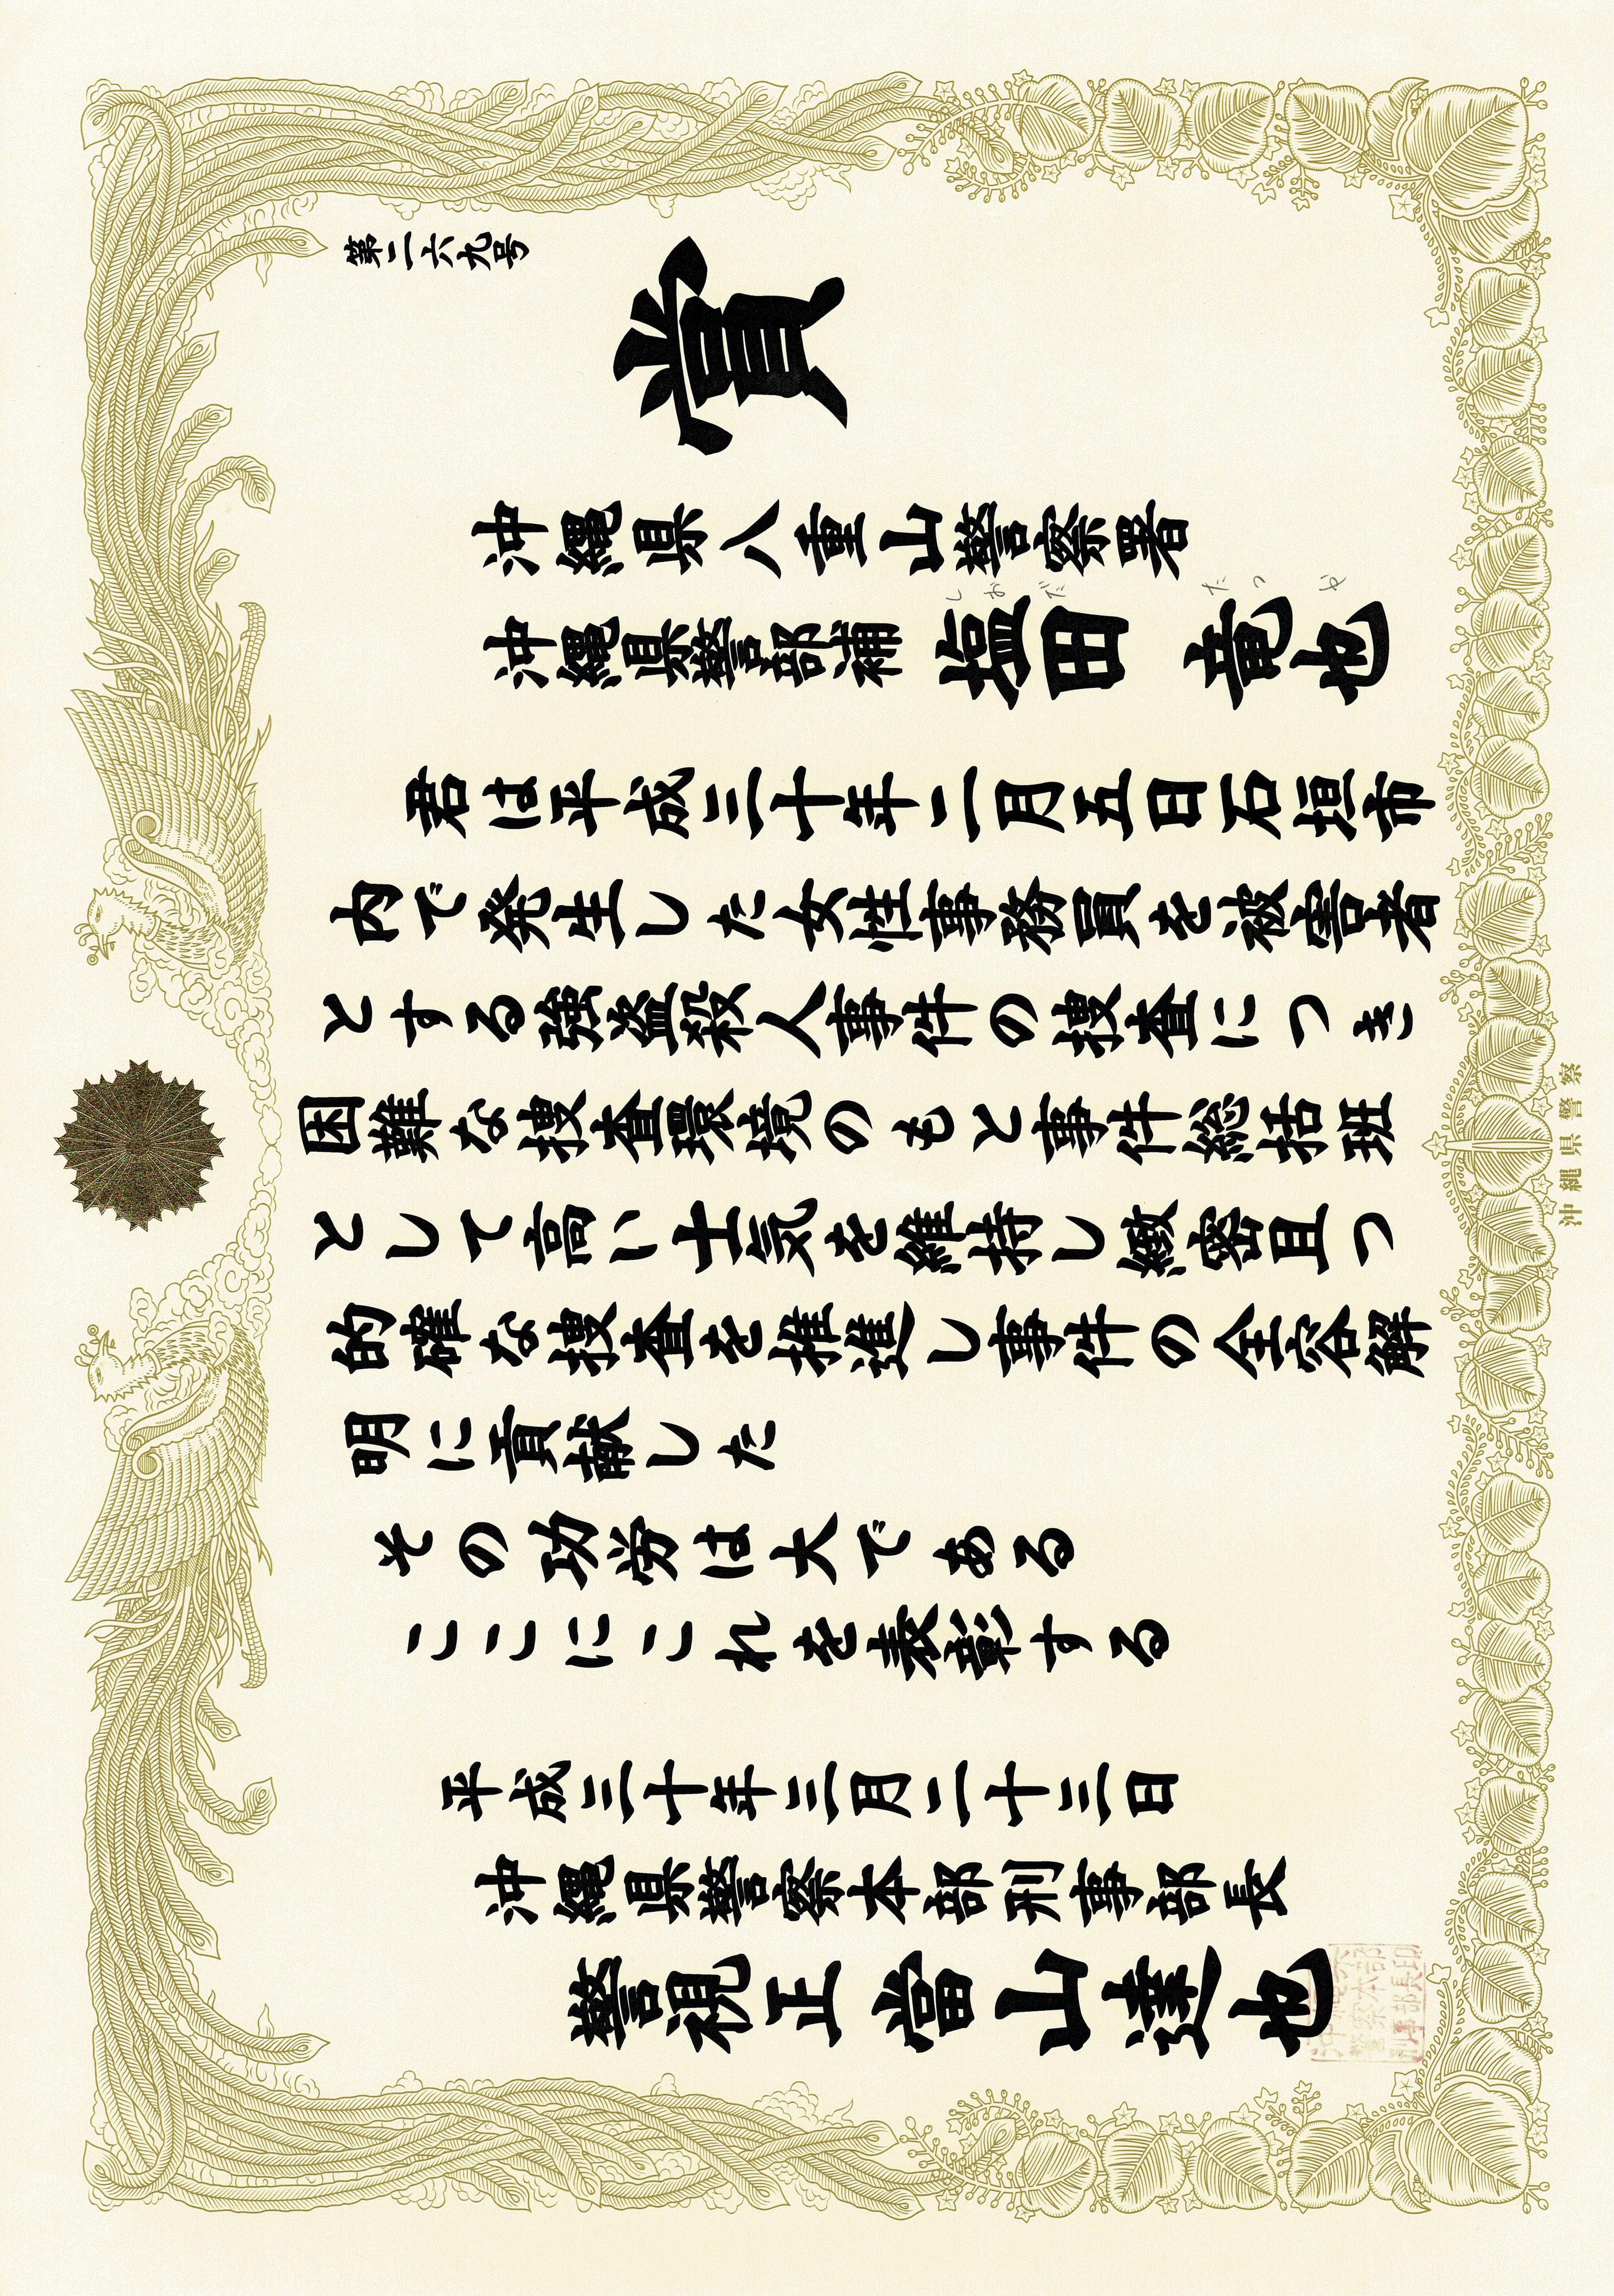 第二六九号
賞
沖縄県八重山警察署
沖縄県警部補 塩田 竜也
しおだ たつや
君は平成三十年二月五日石垣市
内で発生した女性事務員を被害者
とする強盗殺人事件の捜査につき
困難な捜査環境のもと事件総括班
として高い士気を維持し緻密且つ
的確な捜査を推進し事件の全容解
明に貢献した
その功労は大である
ここにこれを表彰する
平成三十年三月二十三日
沖縄県警察本部刑事部長
警視正 當山達也
沖縄県警察